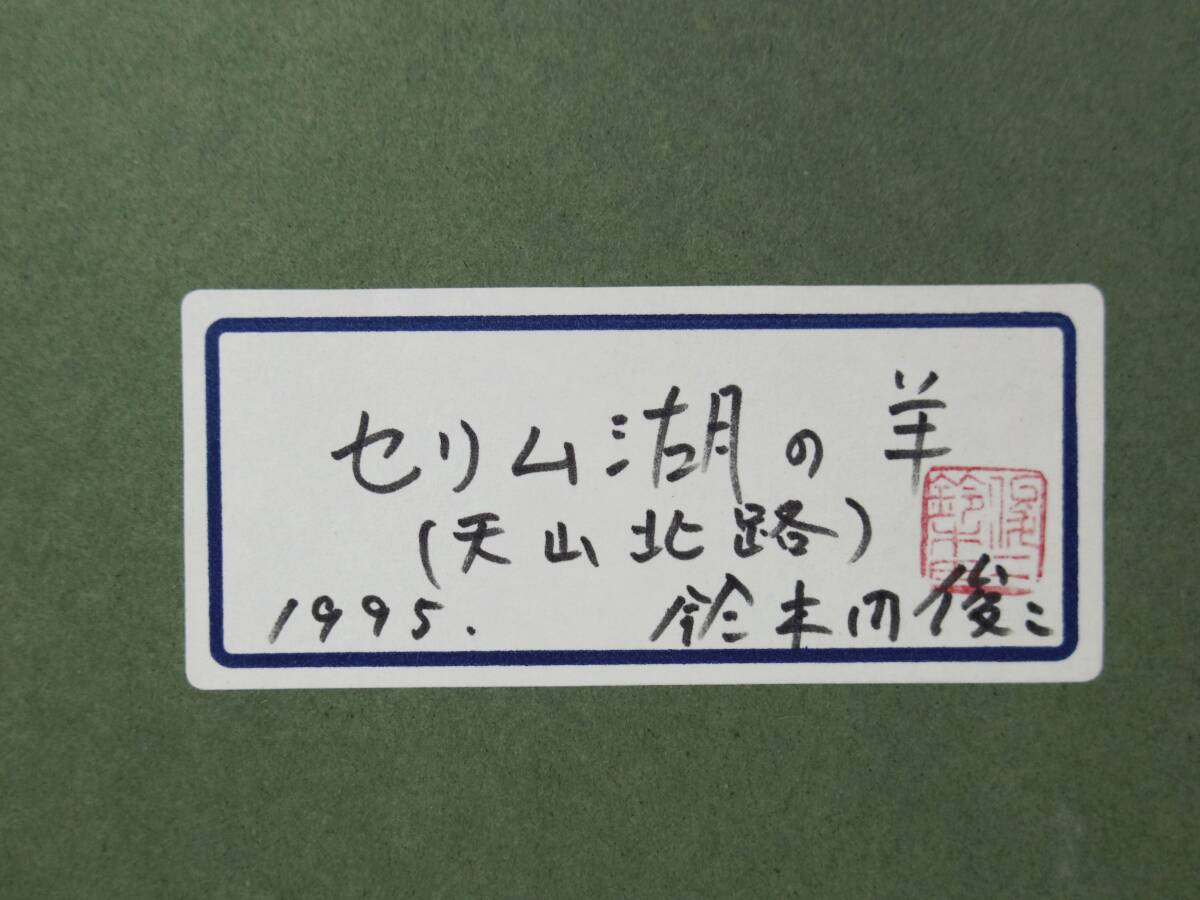 セリム湖の羊
(天山北路)
1995. 鈴木田俊二